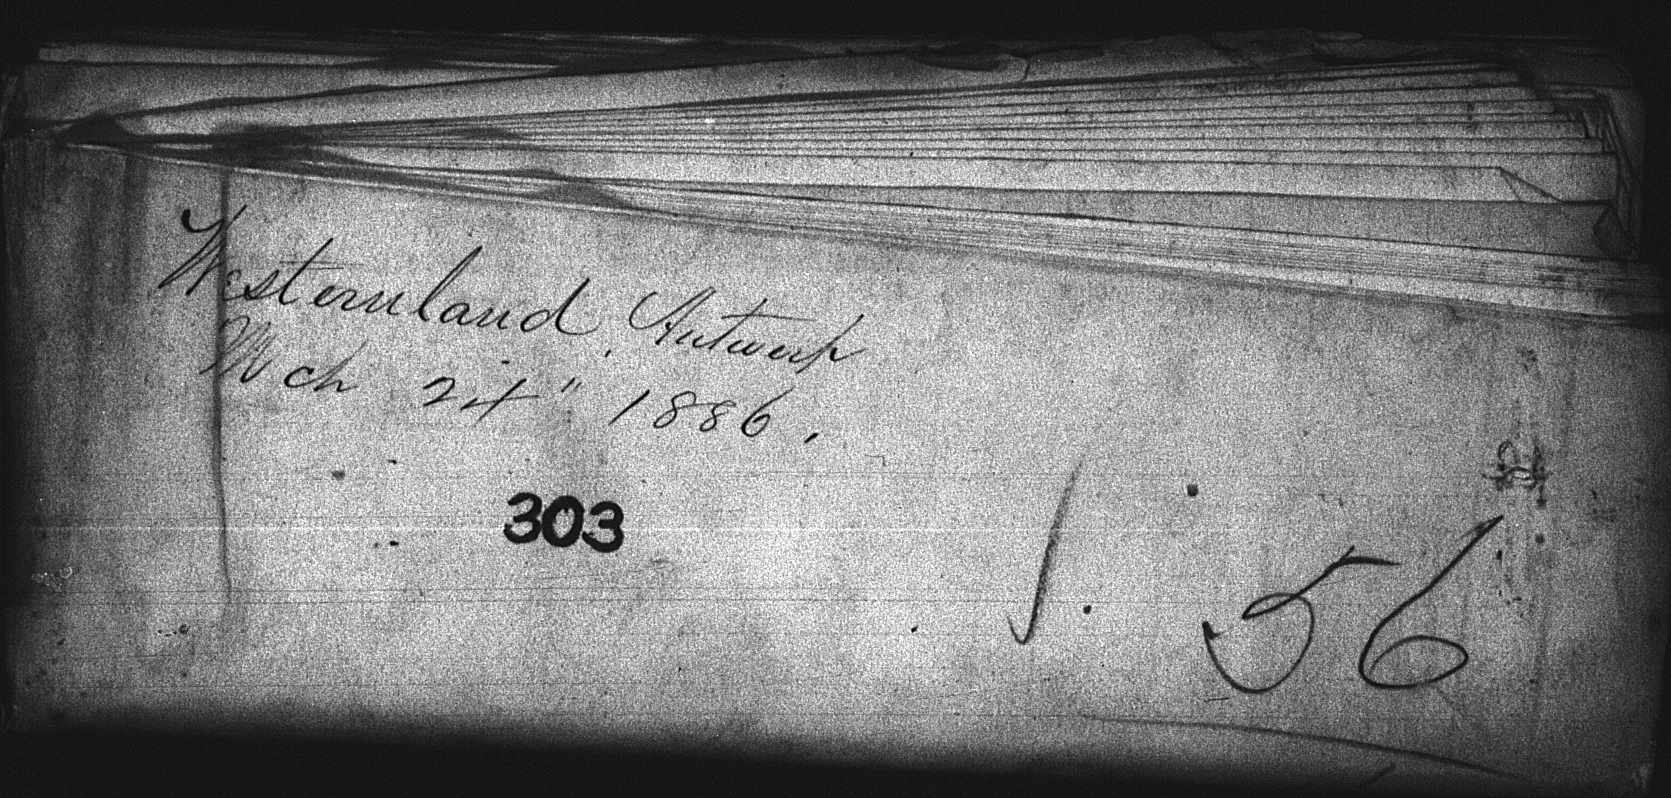 Westernland, Antwerp
Mch 24" 1886.
303
56